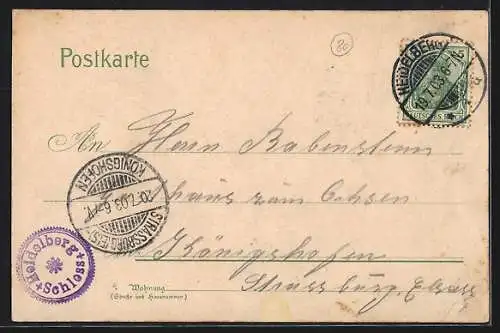 80
Postkarte
HEIDELBERG
19.7.03.6-7N.
An Herrn Rabenstein
haus zum Ochsen
STRASSBURG (ELS)
20.7.03.6-7V.
KÖNIGSHOFEN
Königshofen
Strassburg, Elsass
Heidelberg
Schloss
Wohnung
(Straße und Hausnummer)